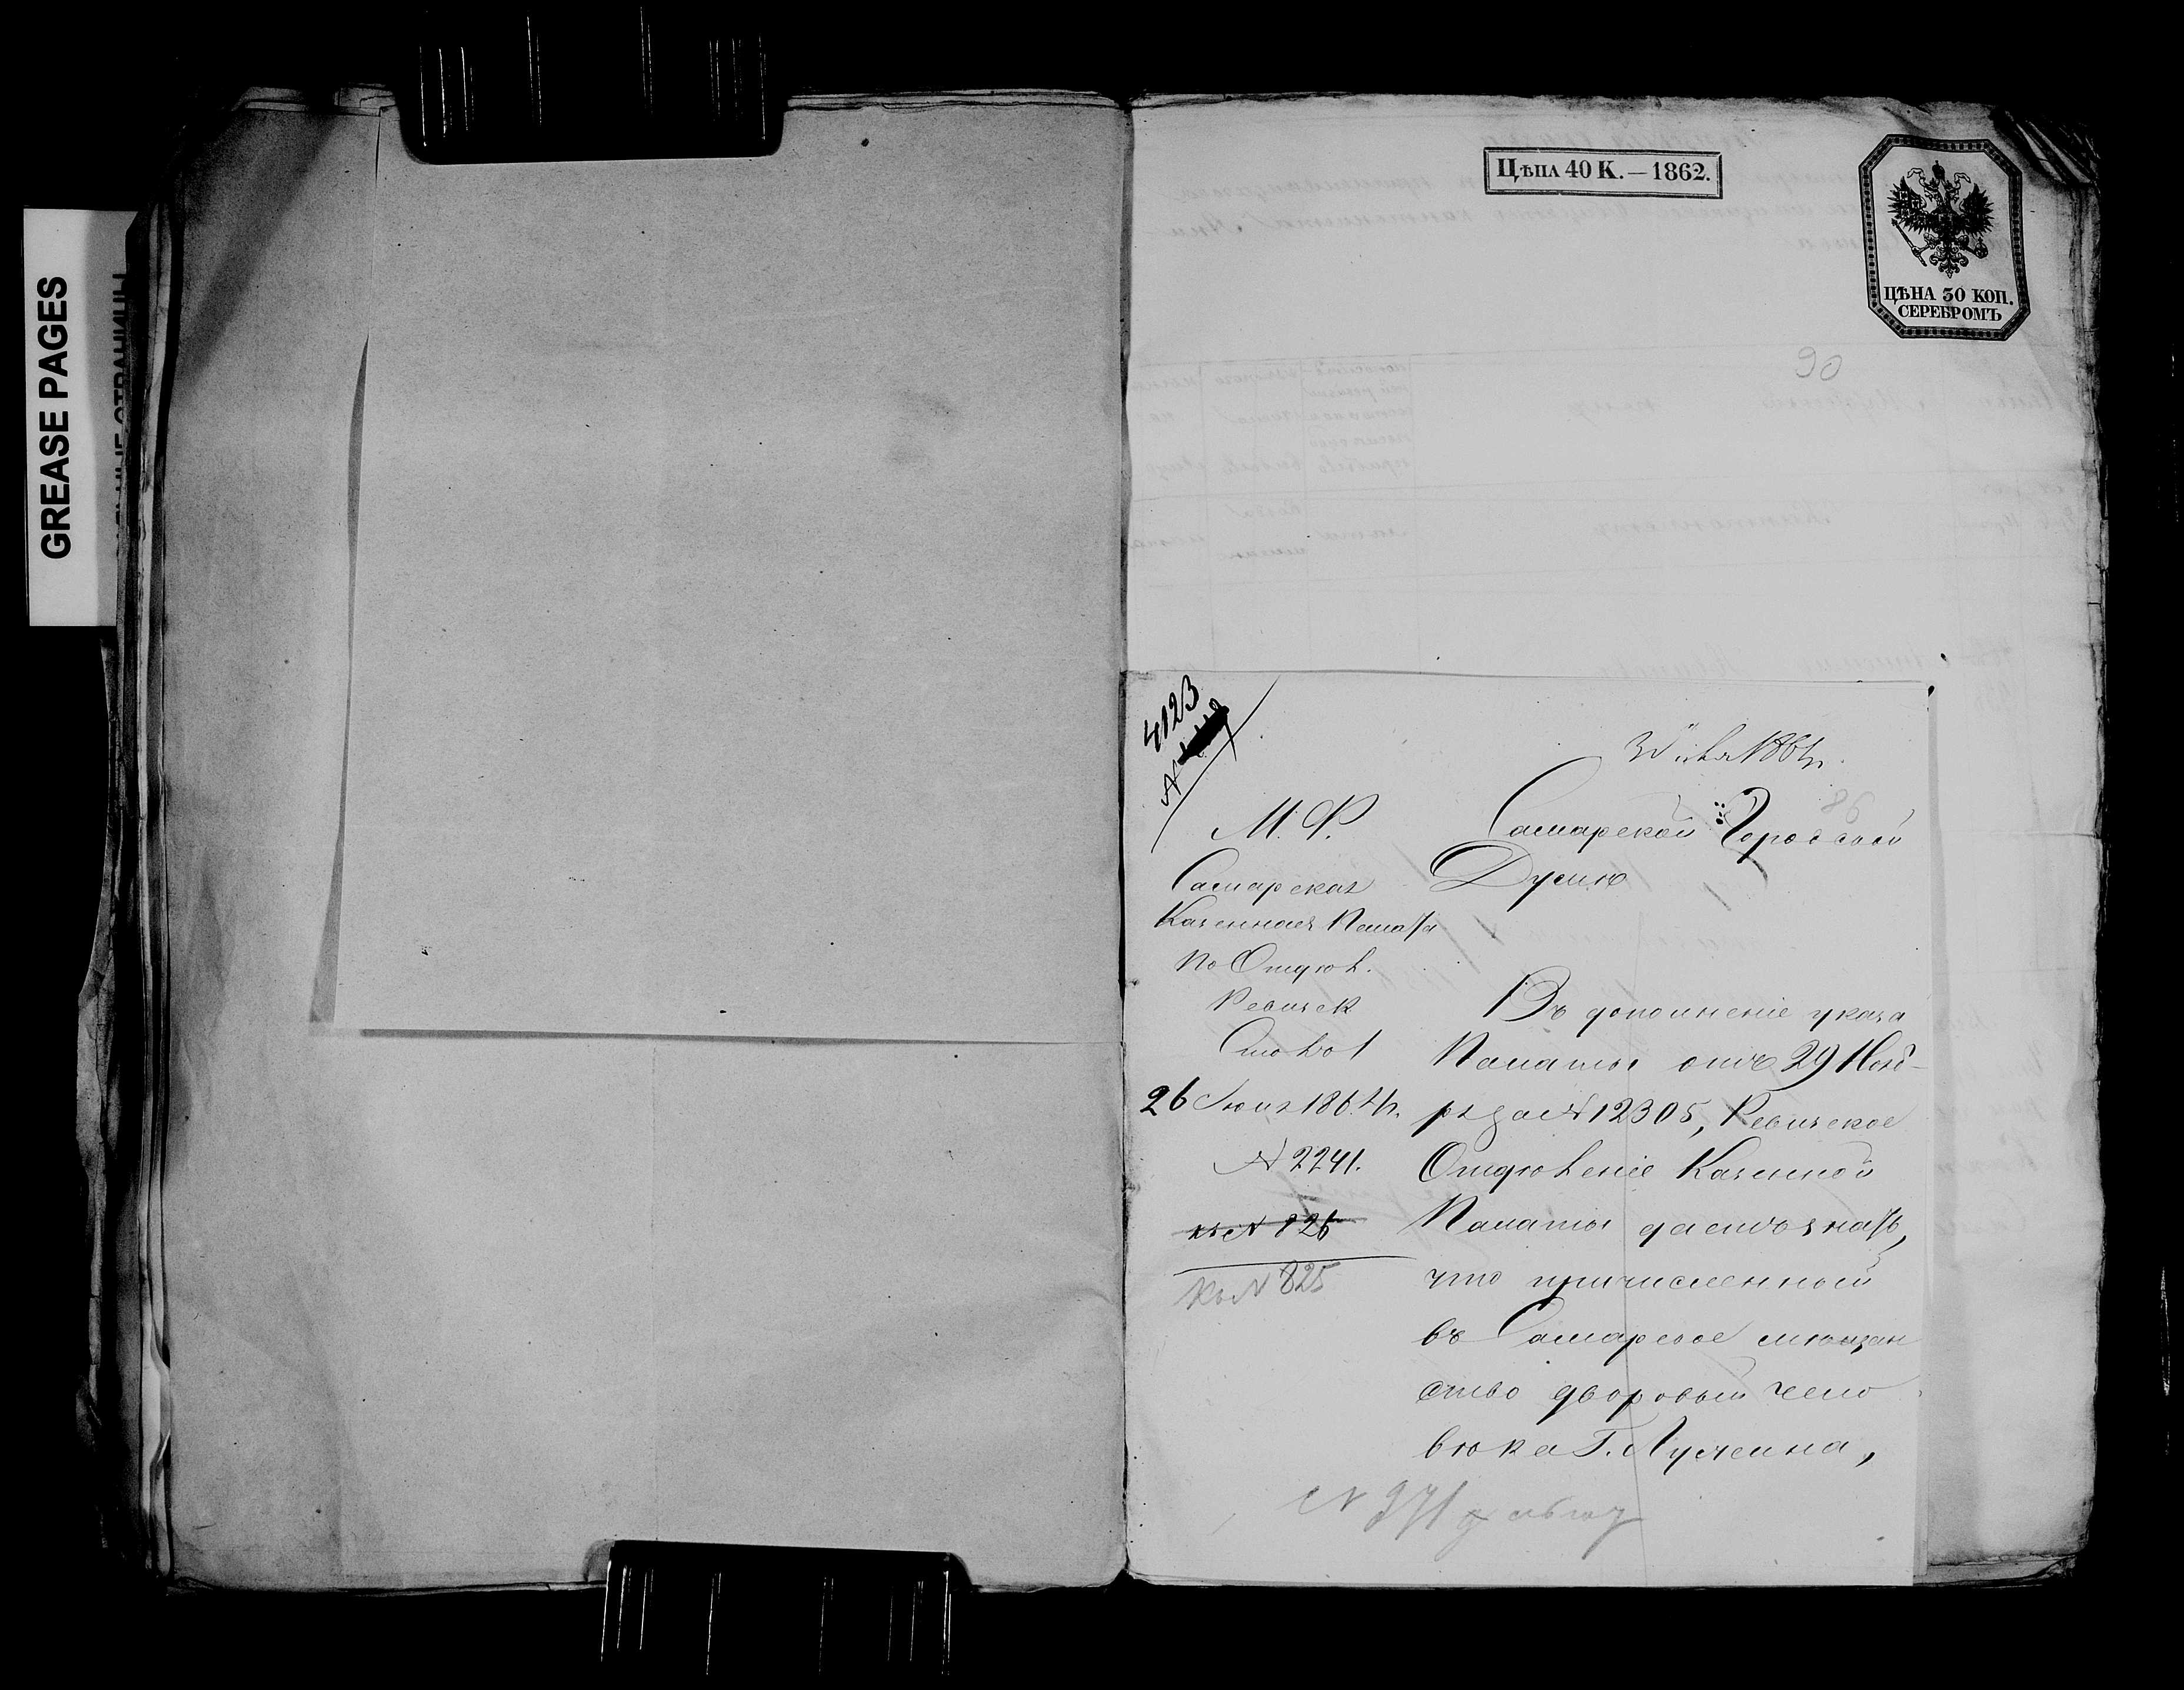 GREASE PAGES
Цѣна 40 К. — 1862.
ЦѢНА 30 КОП.
СЕРЕБРОМЪ
90
4123
№
30 1864 г.
86
М. Ф.
Самарская
Казенная Палата
По Отдѣл.
Ревизск
Столъ 1
26 Июня 1864 г.
№ 2241.
къ № 826
Къ № 825
Самарской Городской
Думѣ
Въ дополненіе указа
Палаты отъ 29 Нояб-
ря за № 12305, Ревизское
Отдѣленіе Казенной
Палаты даетъ знать,
что причисленной
въ Самарское мѣщан
ство дворовый чело
вѣка Г. Лужина,
№ 371